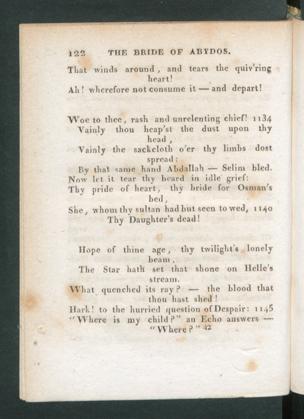 122 THE BRIDE OF ABYDOS.
That winds around, and tears the quiv'ring
heart!
Ah! wherefore not consume it — and depart!
Woe to thee, rash and unrelenting chief! 1134
Vainly thou heap'st the dust upon thy
head,
Vainly the sackcloth o'er thy limbs dost
spread:
By that same hand Abdallah — Selim bled.
Now let it tear thy beard in idle grief:
Thy pride of heart, thy bride for Osman's
bed,
She, whom thy sultan had but seen to wed, 1140
Thy Daughter's dead!
Hope of thine age, thy twilight's lonely
beam,
The Star hath set that shone on Helle's
stream.
What quenched its ray? — the blood that
thou hast shed!
Hark! to the hurried question of Despair: 1145
"Where is my child?" an Echo answers —
"Where?" 42